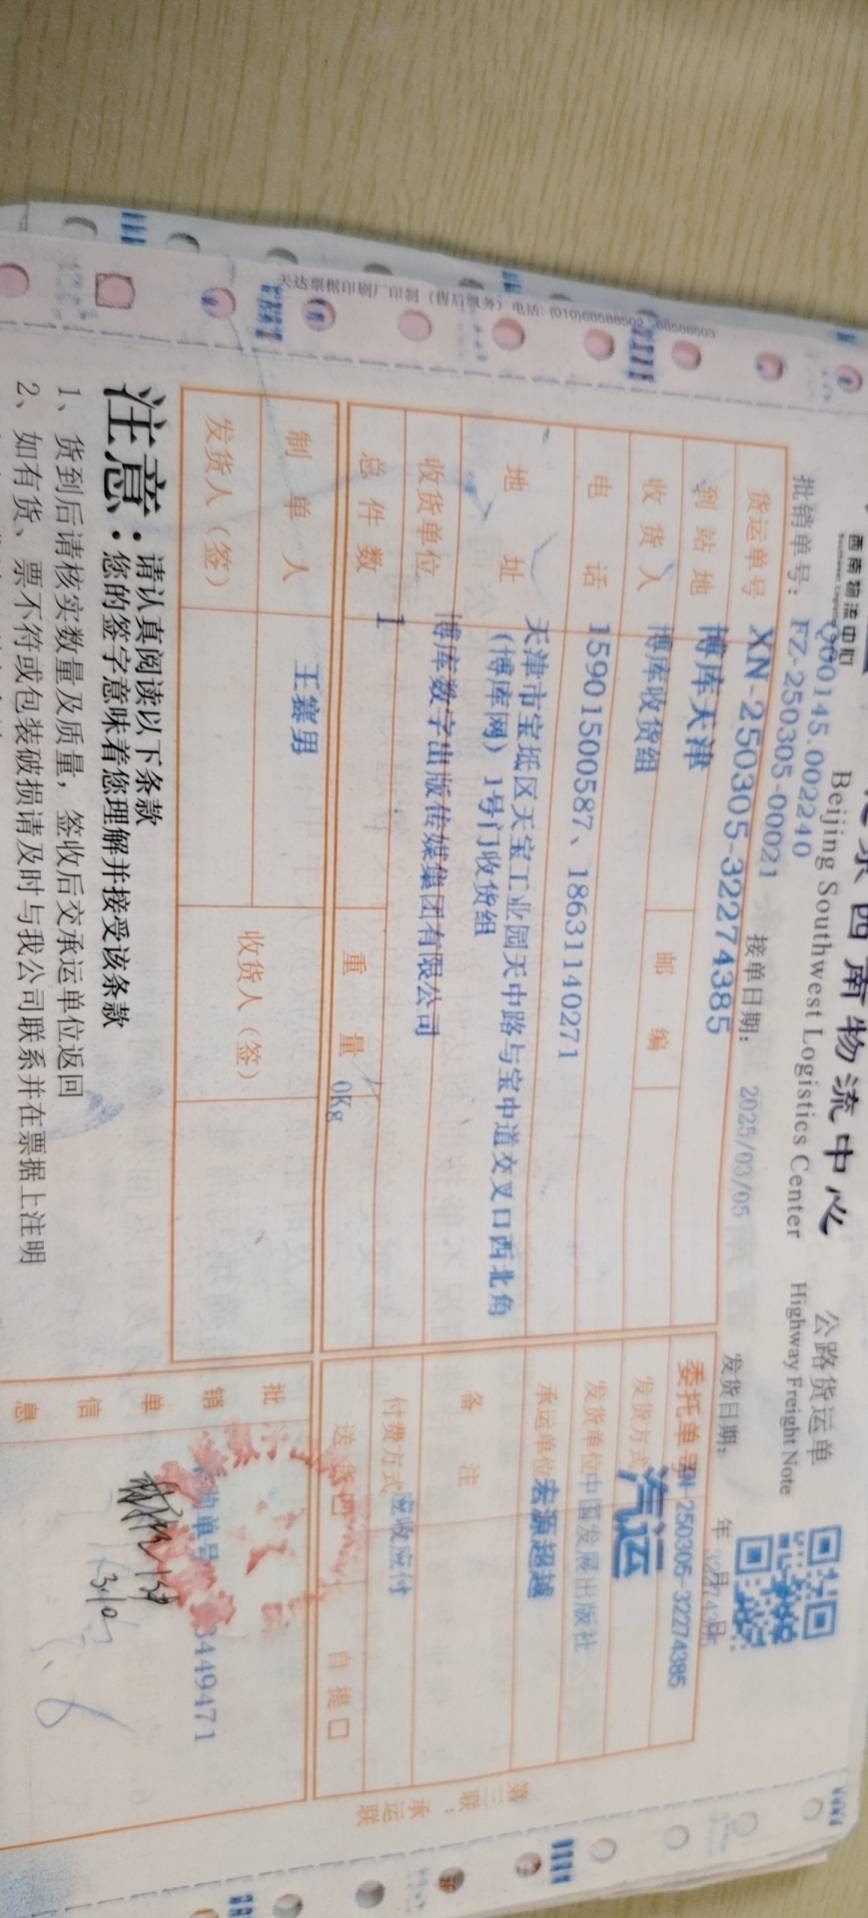 天达票根印刷厂印制（售后服务）电话：(010)68588502 68588503
西南物流中心
北京西南物流中心
公路货运单
Beijing Southwest Logistics Center
Highway Freight Note
Q00145.002240
批销单号：FZ-250305-00021
接单日期：2025/03/05
发货日期： 年 月 日
货运单号 XN-250305-32274385
委托单号 XN-250305-32274385
到站地 博库天津
发货方式 汽运
收货人 博库收货组
邮编
发货单位 中国发展出版社
电话 15901500587、18631140271
承运单位 宏源超越
地址 天津市宝坻区天宝工业园天中路与宝中道交叉口西北角
（博库网）1号门收货组
备注
收货单位 博库数字出版传媒集团有限公司
付费方式 应收应付
总件数 1
重量 0Kg
送货口
自提口
制单人 王赛男
发货人（签）
收货人（签）
批销单信息
采购单号 3449471
3.10
第三联：承运联
注意：请认真阅读以下条款
您的签字意味着您理解并接受该条款
1、货到后请核实数量及质量，签收后交承运单位返回
2、如有货、票不符或包装破损请及时与我公司联系并在票据上注明